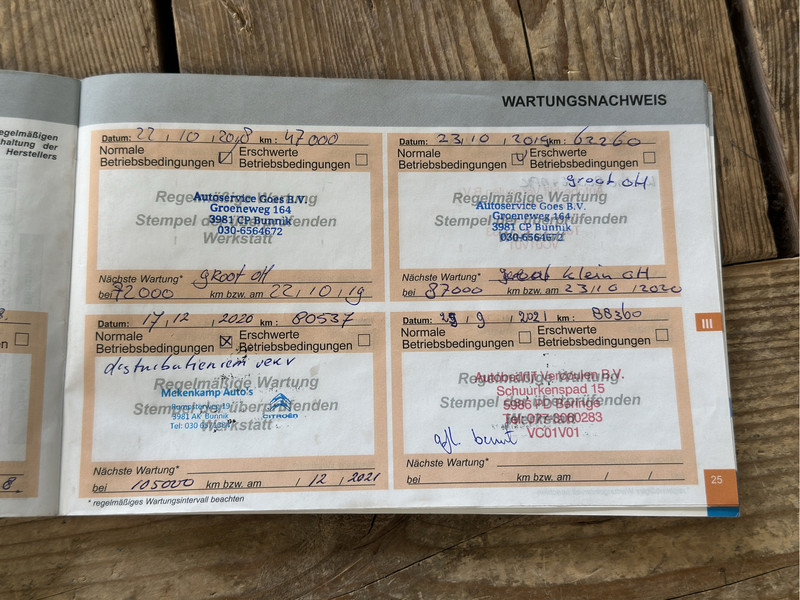 egelmäßigen
haltung der
Herstellers
WARTUNGSNACHWEIS
Datum: 22 , 10 , 2018 km : 47000
Normale Betriebsbedingungen
Erschwerte Betriebsbedingungen
Regelmäßige Wartung
Stempel der überprüfenden
Werkstatt
Autoservice Goes B.V.
Groeneweg 164
3981 CP Bunnik
030-6564672
Nächste Wartung* groot OH
bei 72000 km bzw. am 22, 10, 19
Datum: 23, 10 , 2019 km : 62260
Normale Betriebsbedingungen
Erschwerte Betriebsbedingungen
groot OH
Regelmäßige Wartung
Stempel der überprüfenden
Autoservice Goes B.V.
Groeneweg 164
3981 CP Bunnik
030-6564672
VC01V01
Nächste Wartung* klein OH
bei 87000 km bzw. am 23, 10, 2020
Datum: 17, 12 , 2020 km : 80537
Normale Betriebsbedingungen
Erschwerte Betriebsbedingungen
distributieriem verv
Regelmäßige Wartung
Stempel der überprüfenden
Werkstatt
Mekenkamp Auto's
3981 AK Bunnik
Tel: 030
CITROËN
Nächste Wartung*
bei 105000 km bzw. am / 12 , 2021
Datum: 9 , 2021 km : 88360
Normale Betriebsbedingungen
Erschwerte Betriebsbedingungen
Regelmäßige Wartung
Stempel der überprüfenden
Werkstatt
Autobedrijf B.V.
Schuurkenspad 15
5986 PD Beringe
VC01V01
Nächste Wartung*
bei km bzw. am / /
* regelmäßiges Wartungsintervall beachten
8.
III
25